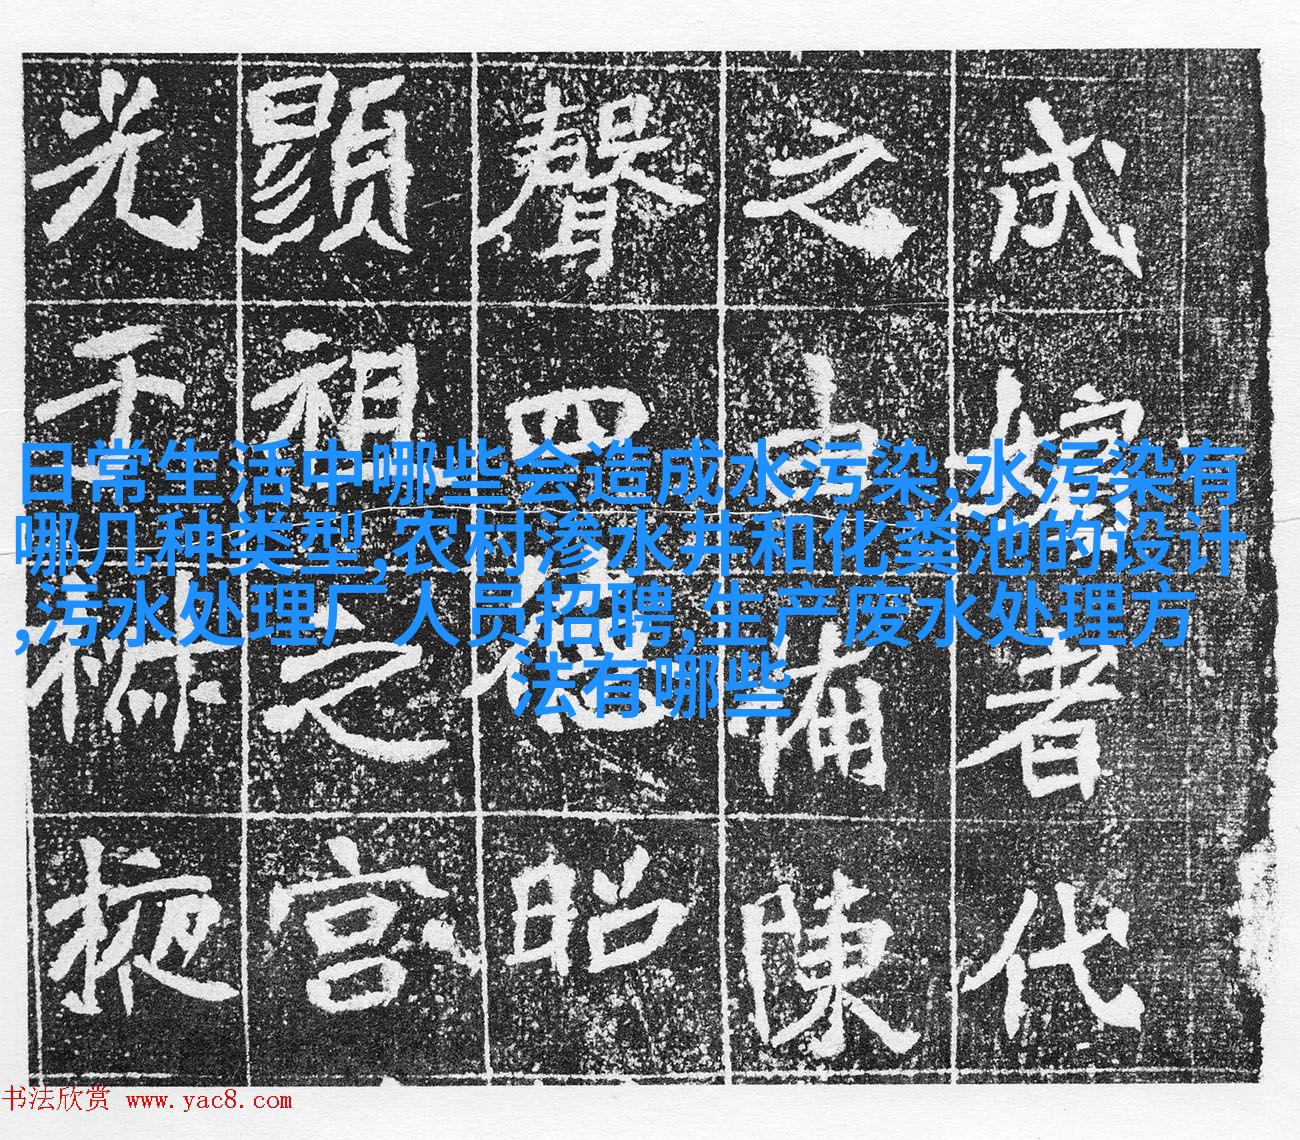 者代
之由備陳
聲四德昭
顯祖之宮
光于掖
日常生活中哪些会造成水污染,水污染有
哪几种类型,农村渗水井和化粪池的设计
,污水处理厂人员招聘,生产废水处理方
法有哪些
书法欣赏 www.yac8.com